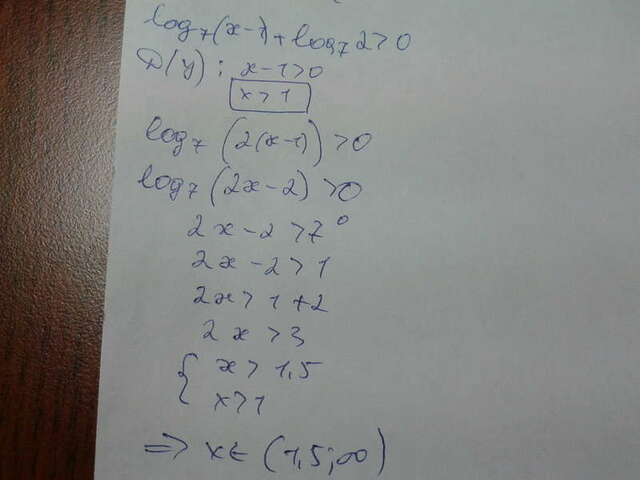 log₇(x-1)+log₇2>0
D(y): x-1>0
x>1
log₇(2(x-1))>0
log₇(2x-2)>0
2x-2>7⁰
2x-2>1
2x>1+2
2x>3
{ x>1,5
x>1
⇒ x∈(1,5;∞)